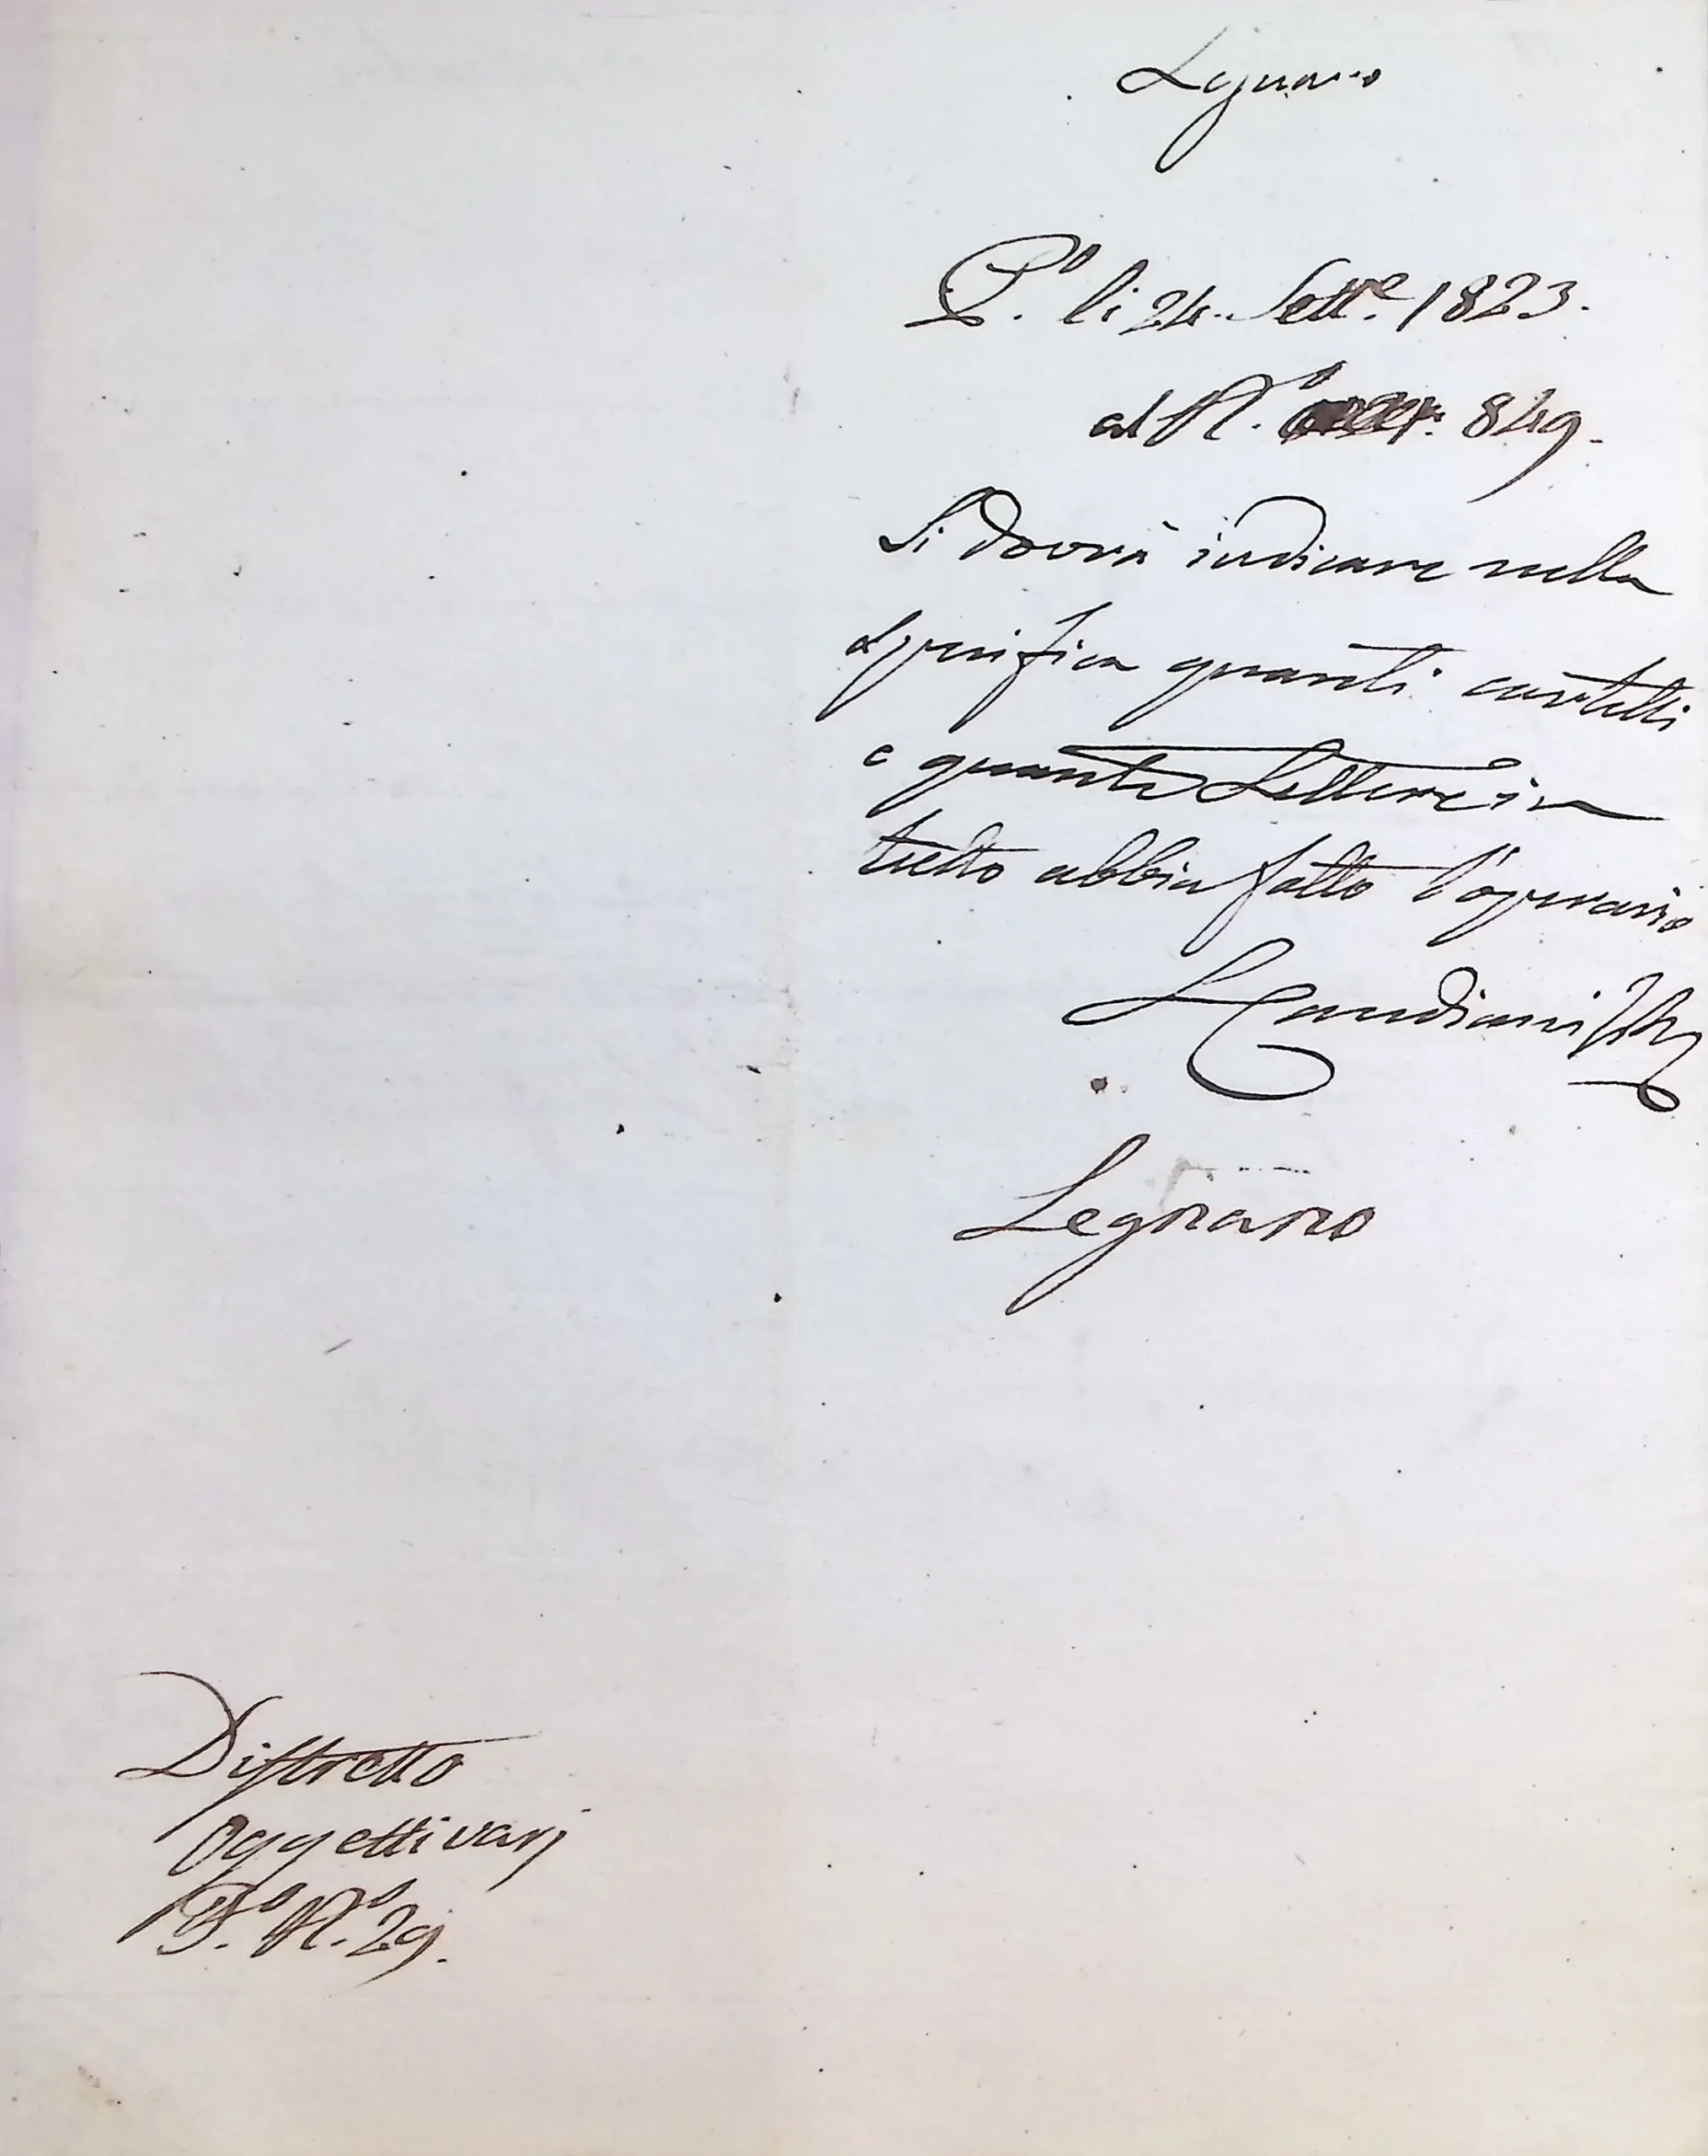 Legnano
P.º li 24. Sett.e 1823.
al N.º 849.
Si dovrà indicare nella
specifica quanti cartelli
e quante Lettere in
tutto abbia fatto l'operario
Candiani
Legnano
Distretto
Oggetti varj
P.º N.º 29.